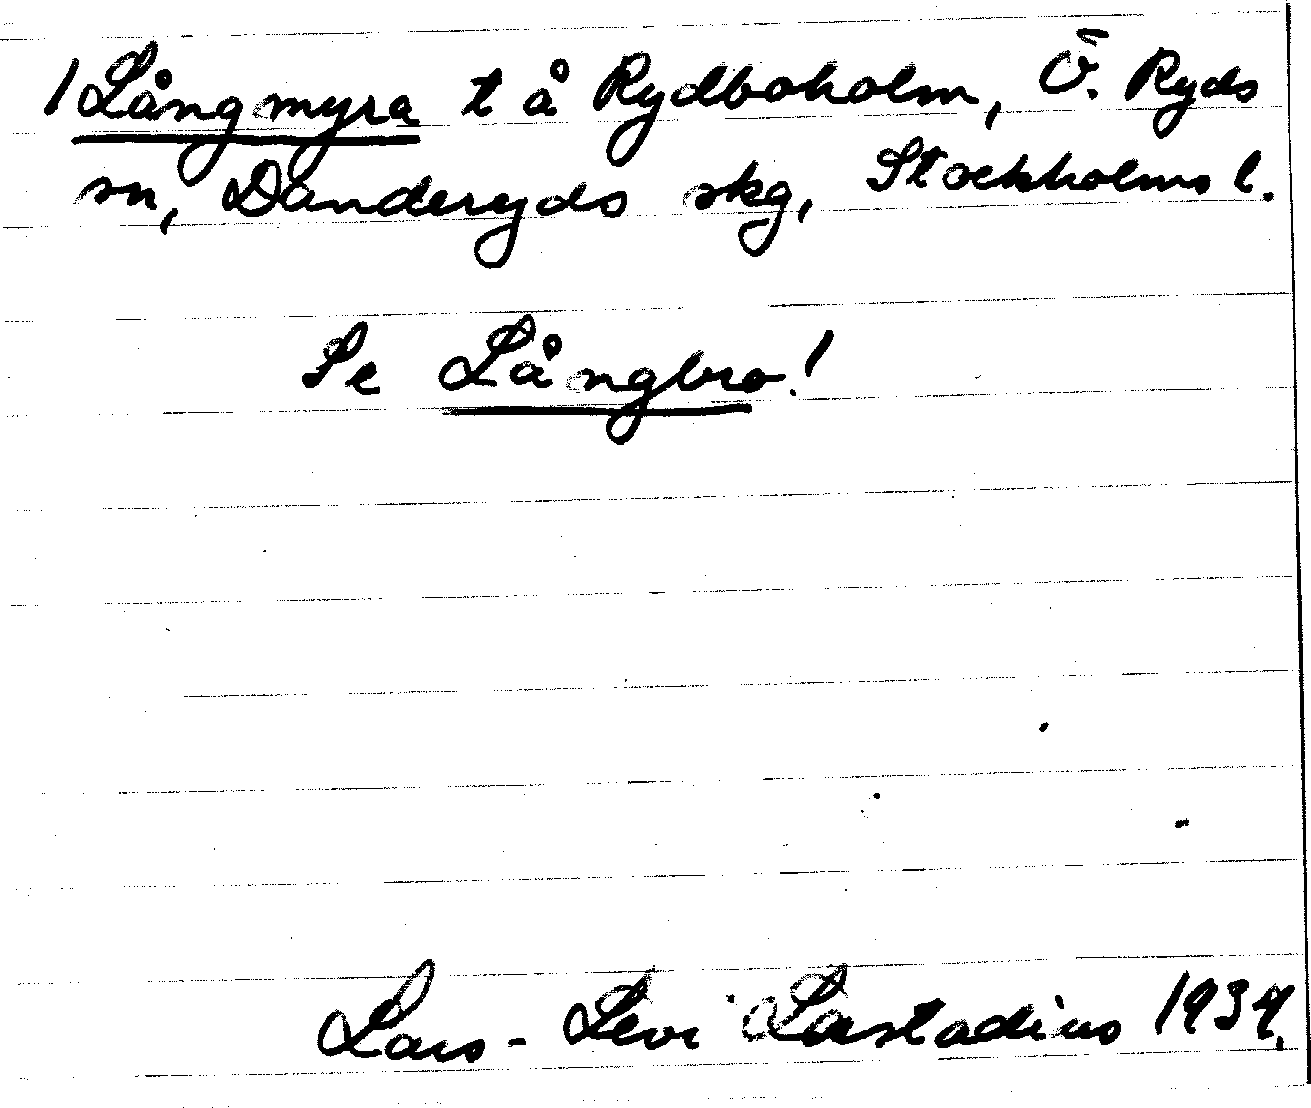 /Långmyra t å Rydboholm, Ö. Ryds
sn, Danderyds skg, Stockholms l.
Se Långbro!
Lars-Levi Læstadius 1934.